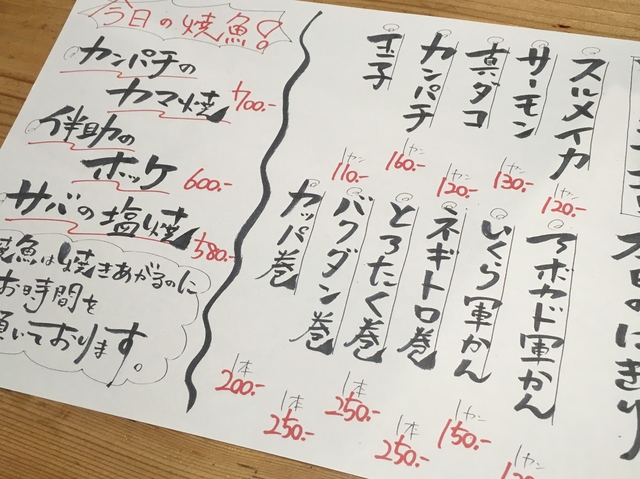 今日の焼魚!
カンパチの
カマ焼 700.-
伴助の
ホッケ 600.-
サバの塩焼 580.-
焼魚は焼きあがるのに
お時間を
頂いております。
本日のにぎり
スルメイカ 1カン 120.-
サーモン 1カン 130.-
真ダコ 1カン 120.-
カンパチ 1カン 160.-
玉子 1カン 110.-
アボカド軍かん 1カン
いくら軍かん 1カン 150.-
ネギトロ巻 1本 250.-
とろたく巻 1本 250.-
バクダン巻 1本 250.-
カッパ巻 1本 200.-